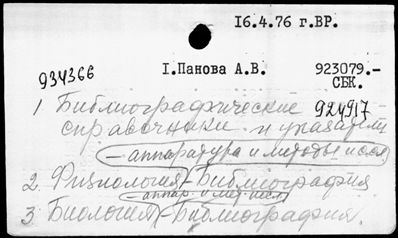 16.4.76 г.ВР.
934366 I.Панова А.В. 923079.-
СБК.
1 Библиографические 924917
справочники и указатели
- аппаратура и методы иссл
2. Физиология - Библиография
- аппар. и мет. иссл
3 Биология - Библиография.